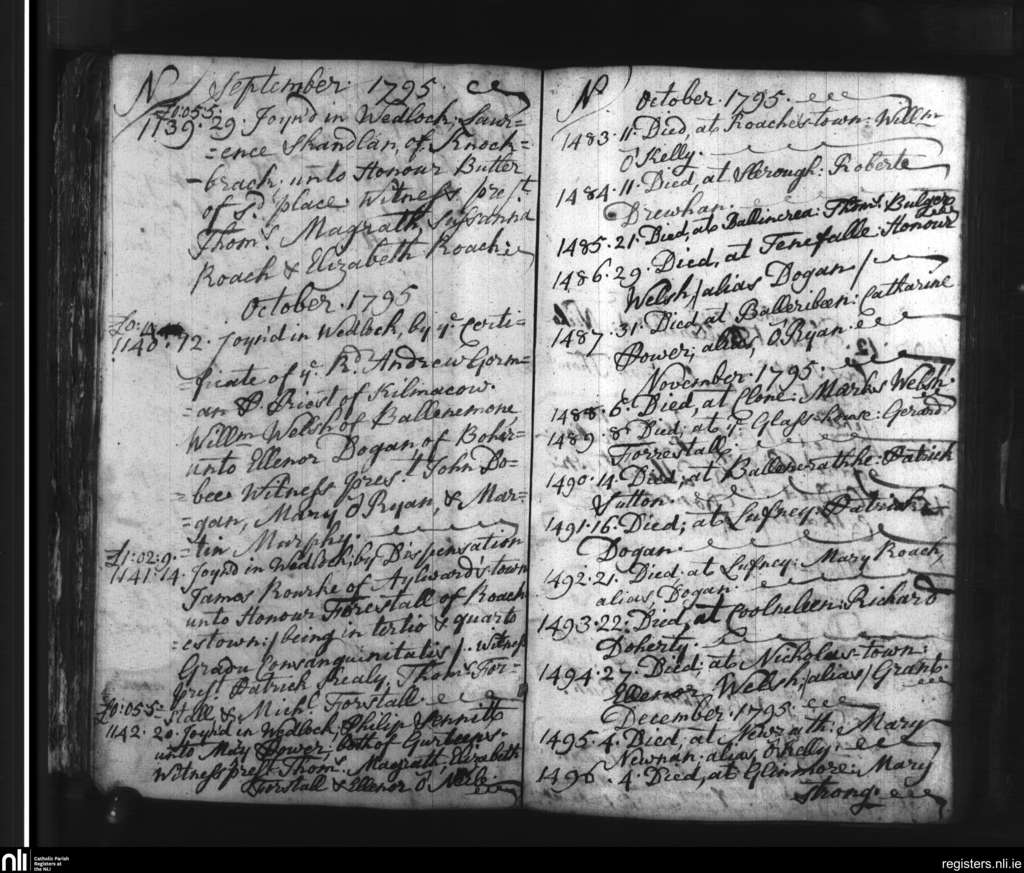 N September 1795.
£1:05:5
1139. 29. Joyn'd in Wedlock: Law=
=ence Shandlan, of Knock=
=brack: unto Honour Butler
of Sd. place Witness pres.t
Thoms. Magrath, Sussanna
Roach & Elizabeth Roach:
October 1795
1140. 12. Joyn'd in Wedlock, by ye. Certi=
=ficate of ye. Rd. Andrew Gorm=
=an P. Priest of Kilmacow.
Willm Welsh of Ballenemone
unto Ellenor Dogan of Bohir=
=bee Witness pres.t John Do=
=gan, Mary O'Ryan, & Mar=
=tin Murphy.
£1:02:9.
1141. 14. Joyn'd in Wedlock, by Dispensation
James Rourke of Aylwardstown
unto Honour Forestall of Roach
=estown: / being in tertio & quarto
Gradu Consanguinitatis /. witness
prest. Patrick Healy, Thoms. For=
=stall & Michl. Forstall
£0:05:5
1142. 20. Joyn'd in Wedlock, Philip
unto May Power; both of Gurteens.
Witness prest. Thoms. Magrath Elizabeth
Forstall & Ellenor O'
N October 1795.
1483. 11. Died, at Roachestown: Willm
O'Kelly.
1484. 11. Died, at Slerough: Roberte
Drewhan.
1485. 21. Died, at Ballincrea: Thoms. Bulger
1486. 29. Died, at Tenefalle: Honour
Welsh/alias Dogan/
1487. 31. Died, at Balleribeen: Catharine
Power; alias, O'Ryan.
November 1795.
1488. 6. Died, at Clone: Marks Welsh.
1489. 8. Died, at ye. Glass-house: Gerard
Forrestall
1490. 14. Died, at Ballencrathke: Patrick
Sutton
1491. 16. Died; at Lufney: Patrick
Dogan.
1492. 21. Died: at Lufney: Mary Roach,
alias, Dogan.
1493. 22. Died, at Coolneleen: Richard
Doherty.
1494. 27. Died; at Nicholas-town:
Ellenor Welsh, /alias/ Grant.
December 1795.
1495. 4. Died, at Newrath: Mary
Newnan: alias, O'Kelly.
1496. 4. Died, at Glinmore: Mary
Strong.
nli
Catholic Parish
Registers at
the NLI
registers.nli.ie